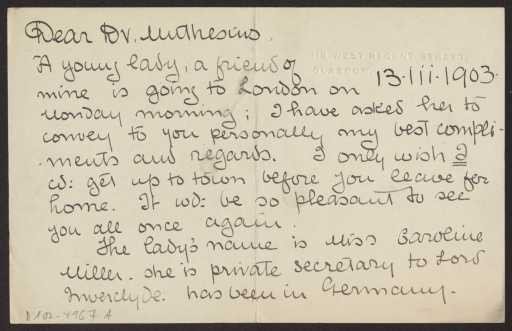 Dear Dr. Muthesius.
116 WEST REGENT STREET,
GLASGOW
A young lady, a friend of
13·iii·1903·
mine is going to London on
Monday morning; I have asked her to
convey to you personally my best compli-
-ments and regards. I only wish I
cd: get up to town before you leave for
home. It wd: be so pleasant to see
you all once again.
The lady's name is Miss Caroline
Miller. She is private secretary to Lord
Inverclyde. has been in Germany.